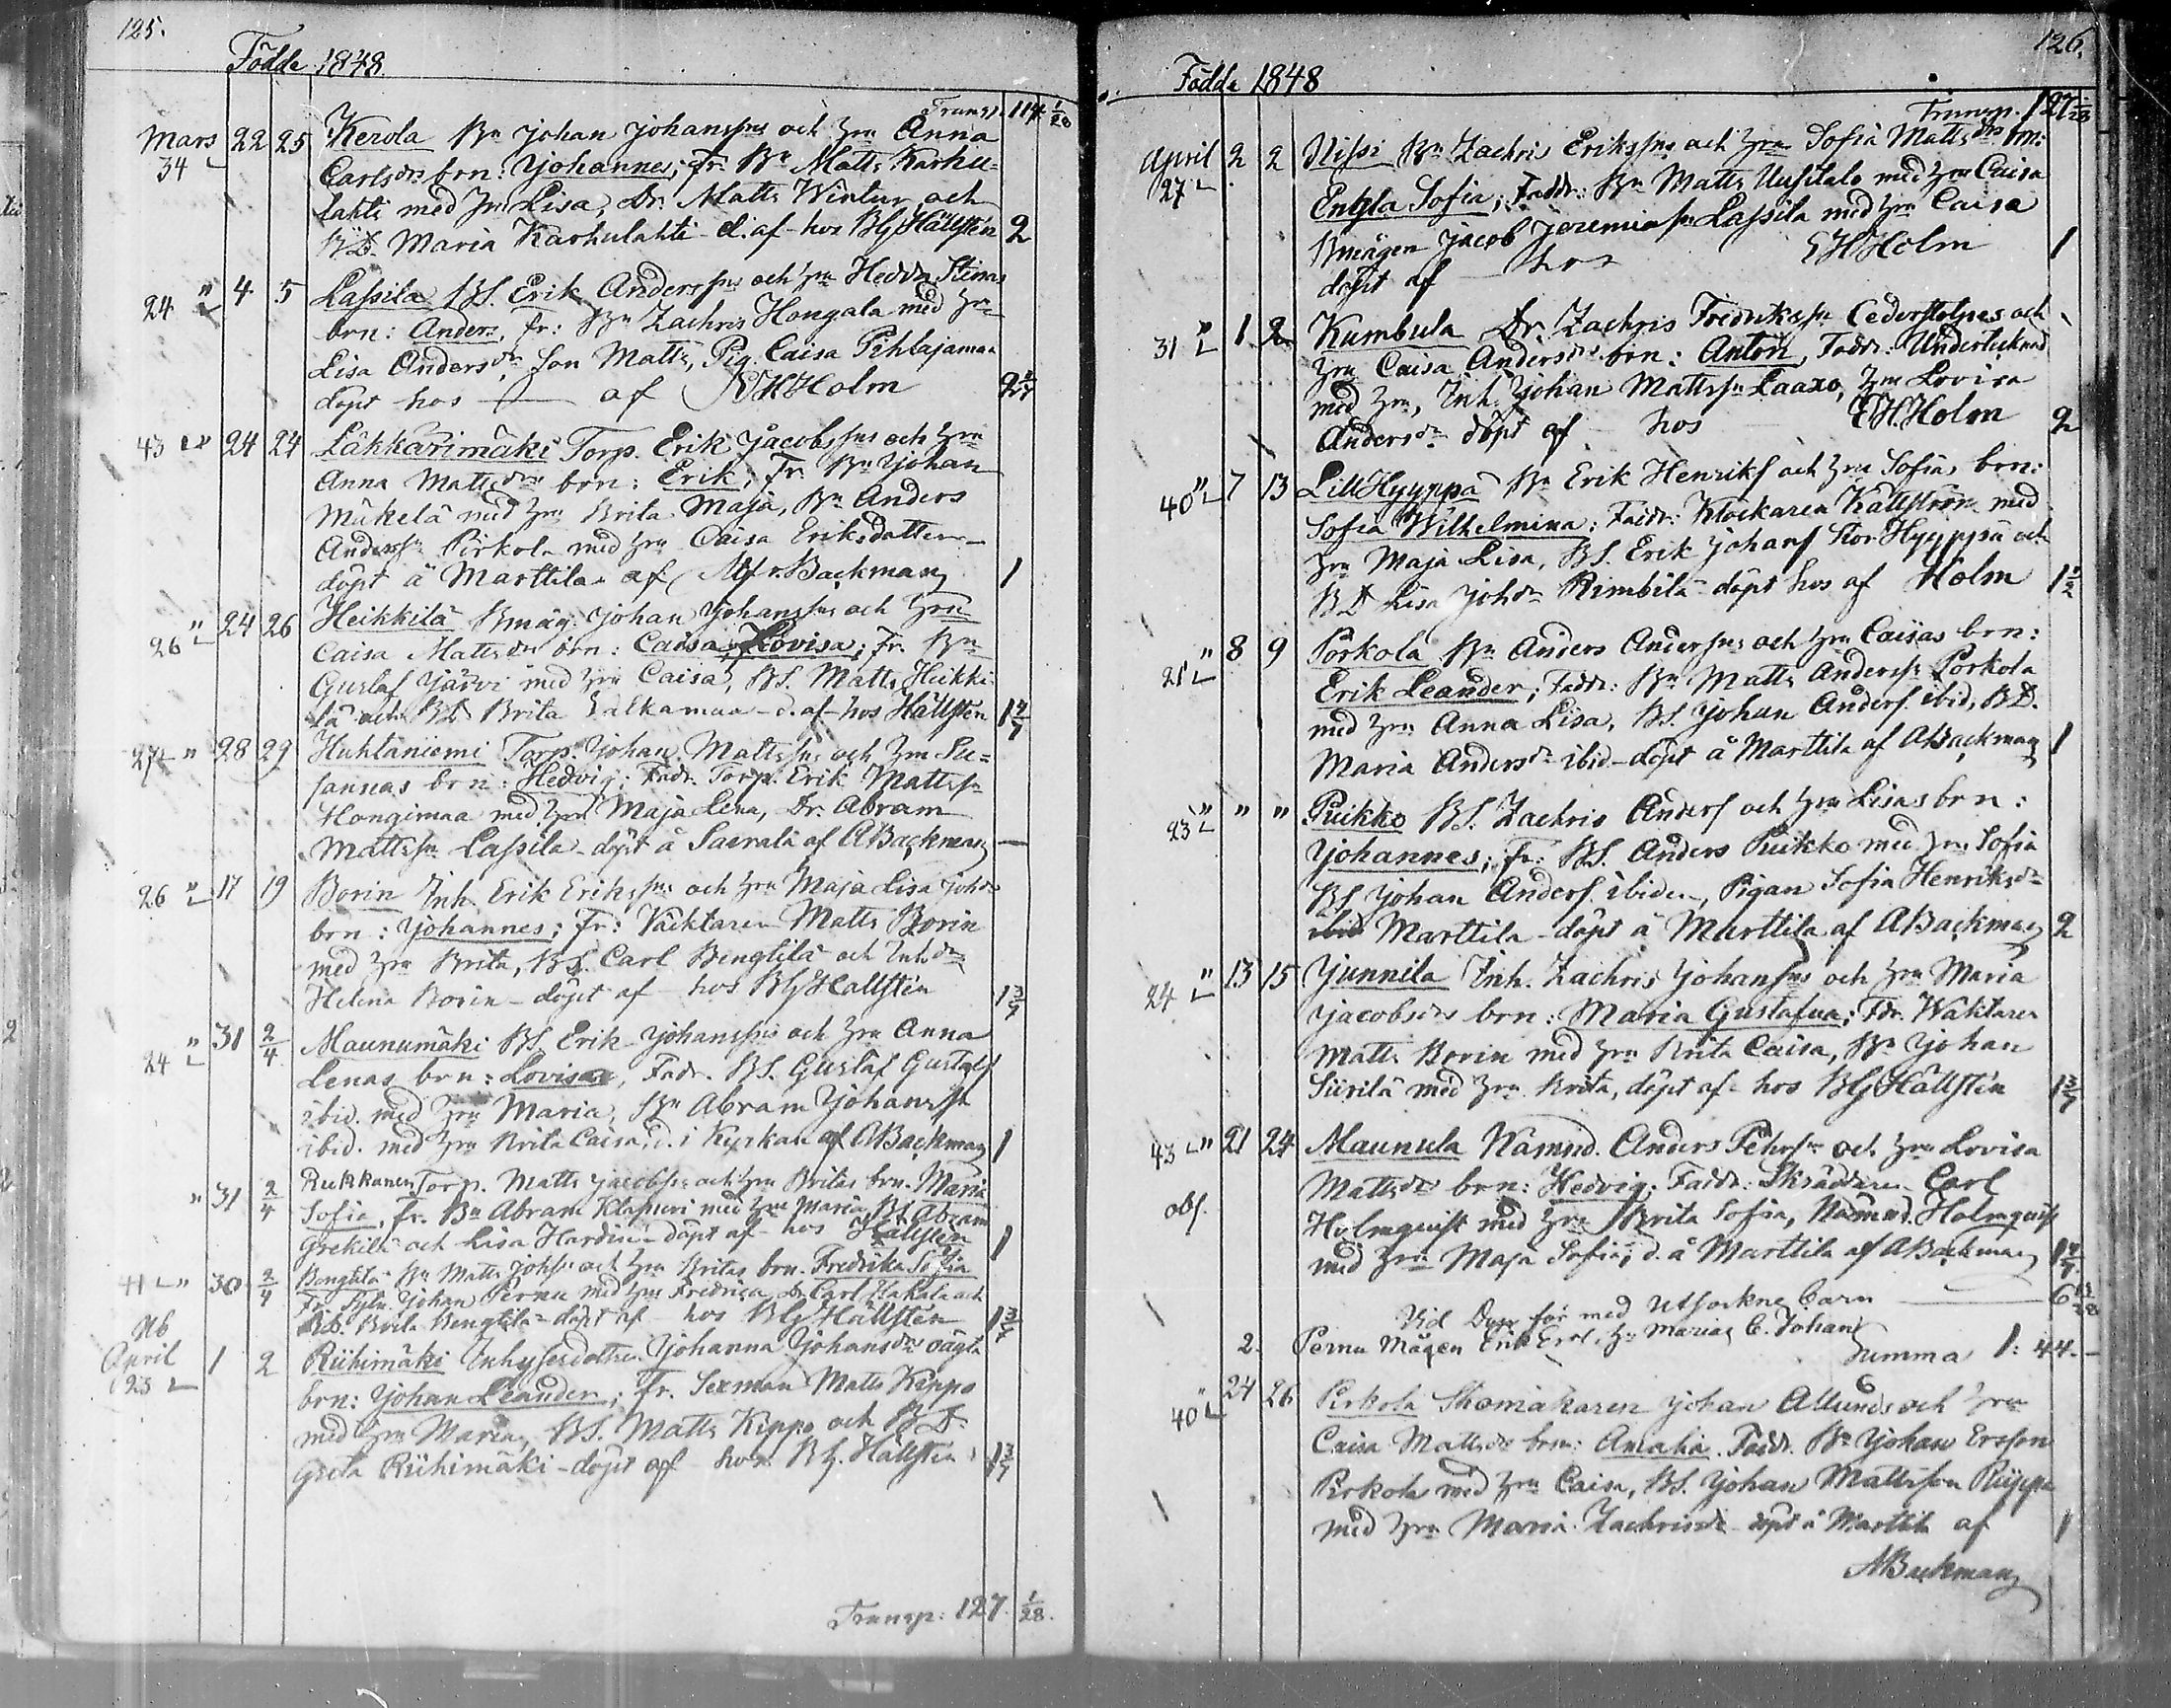 125.
Födde 1848.
Transp. 114 1/28
Mars 22 25 Kerola Bn Johan Johanssns och hru Anna
34 Carlsdrs brn: Johannes; fr. Bn Matts Karhu-
lahti med hru Lisa, Dr. Matts Wintur och
BD. Maria Karhulahti - d. af - hos BGHällstén 2
24 " 4 5 Lassila BS. Erik Anderssns och hru Hedda Stinas
brn: Anders, fr: Bn Zachris Hongala med hru
Lisa Andersdr, Son Matts, Pig. Caisa Pihlajamaa
döpt hos — af EHHolm
43 " 24 24 Läkkärimäki Torp. Erik Jacobssns och hru
Anna Mattsdrs brn: Erik; Fr. Bn Johan
Mäkelä med hru Brita Maja, Bn Anders
Anderssn Pirkola med hru Caisa Eriksdotter -
döpt å Marttila - af Backman 1
26 " 24 26 Heikkilä Bmåg. Johan Johanssns och hru
Caisa Mattsdrs brn: Caisa Lovisa; Fr. Bn
Gustaf Järvi med hru Caisa, BS. Matts Heikki-
lä och BD Brita Salkamaa - d. af - hos Hällstén
27 " 28 29 Huhtaniemi Torp. Johan Mattssns och hru Su-
sannas brn: Hedvig; Fadr. Torp. Erik Mattssn
Hongimaa med hru Maja Lena, Dr. Abram
Mattssn Lassila - döpt å af ABackman —
26 " 17 19 Borin Inh. Erik Erikssns och hru Maja Lisa Johdrs
brn: Johannes; Fr: Väcktaren Matts Borin
med hru Brita, BS. Carl Bengtilä och Inhdr
Helena Borin - döpt af - hos BGHällstén 1 3/7
24 " 31 2/4 Maunumäki BS. Erik Johanssns och hru Anna
Lenas brn: Lovisa, Fadr. BS. Gustaf Gustafs
ibid. med hru Maria, Bn Abram Johanssn
ibid. med hru Brita Caisa, d. i Kyrkan af ABackman 1
" 31 2/4 Rukkanen Torp. Matts Jacobssns och hru Britas brn. Maria
Sofia, fr. Bn Abram Klapuri med hru Maria, BS Abram
Grekilä och Lisa Hardin - döpt af - hos Hällstén 1
41 " 30 2/4 Bengtilä Bn Matts Johssns och hru Britas brn. Fredrika Sofia
Fr. Johan Pernu med hru Fredrica, Dr. Carl och
BD. Brita Bengtilä - döpt af - hos BGHällstén 1 3/7
Nb
April 1 2 Riihimäki Inhysesdotter Johanna Johansdrs oägta
23 brn: Johan Leander; Fr. Sexman Matts Kippo
med hru Maria, BS. Matts Kippo och BD.
Greta Riihimäki - döpt af hos BG. Hällstén 1 3/7
Transp: 127. 1/28.
126.
Födde 1848
Transp. 127 1/28
April 2 2 Nissi Bn Zachris Erikssns och hru Sofia Mattsdrs brn:
27 Engla Sofia; Faddr: Bn Matts Uusitalo med hru Caisa
Bmågen Jacob Jeremiassn Lassila med hru Caisa
döpt af — hos EHHolm 1
31 " 1 2 Kumbula Dr. Zachris Fredrikssn Cederstolpes och
hru Caisa Andersdrs brn: Anton, Faddr: Undertecknad
med hru, Inh. Johan Mattssn Laaxo, hru Lovisa
Andersdr döpt af hos EHHolm 2
40 " 7 13 Lill Hyyppä Bn Erik Henriks och hru Sofias brn:
Sofia Wilhelmina; Faddr: Klockaren Källström med
hru Maja Lisa, BS. Erik Johans Stor Hyyppä och
BD Lisa Johdr Rimbilä - döpt hos af Holm 1 1/2
21 " 8 9 Porkola Bn Anders Anderssns och hru Caisas brn:
Erik Leander; Faddr: Bn Matts Anderssn Porkola
med hru Anna Lisa, BS. Johan Anders. ibid, BD.
Maria Andersdr ibid - döpt å Marttila af ABackman 1
23 " " " Puikko BS. Zachris Anders och hru Lisas brn:
Johannes; Fr: BS. Anders Puikko med hru Sofia
BS Johan Anders. ibidem, Pigan Sofia Henriksdr
ibid Marttila - döpt å Marttila af ABackman 2
24 " 13 15 Junnila Inh. Zachris Johanssns och hru Maria
Jacobsdrs brn: Maria Gustafva; Fdr. Wäktaren
Matts Borin med hru Brita Caisa, Bn Johan
Siirilä med hru Brita, döpt af - hos BGHällstén 1 3/7
43 " 21 24 Maunula Nämnd. Anders Pehrssn och hru Lovisa
obs. Mattsdrs brn: Hedvig; Faddr: Skräddaren Carl
Holmquist med hru Brita Sofia, Nämnd. Holmquist
med hru Maja Sofia; d. å Marttila af ABackman
Vid Dop för med Utsockne barn — 6
2. Pernu Mågen Erik Ers., hu Marias C. Johan
Summa 1: 44. —
40 " 24 26 Pirkola Skomakaren Johan Allunds och hru
Caisa Mattsdrs brn: Amalia. Faddr. Bn Johan Ersson
Pirkola med hru Caisa, BS. Johan Mattsson Riippa
med hru Maria Zachrisdr - döpt å Marttila af 1
ABackman